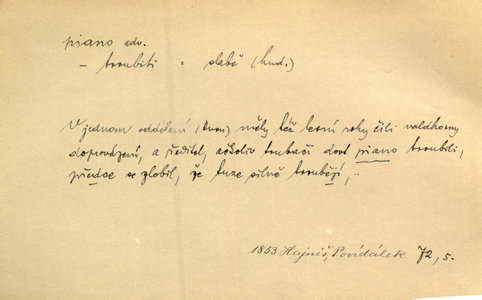 piano adv.
– troubiti = slabě (hud.)
V jednom oddělení (kusu) měly též lesní rohy čili valdhorny
doprovázení, a ředitel, ačkoliv trubači dost piano troubili,
předce se zlobil, že tuze silně troubějí, ..
1853 Hajniš, Povídálek 72, 5.